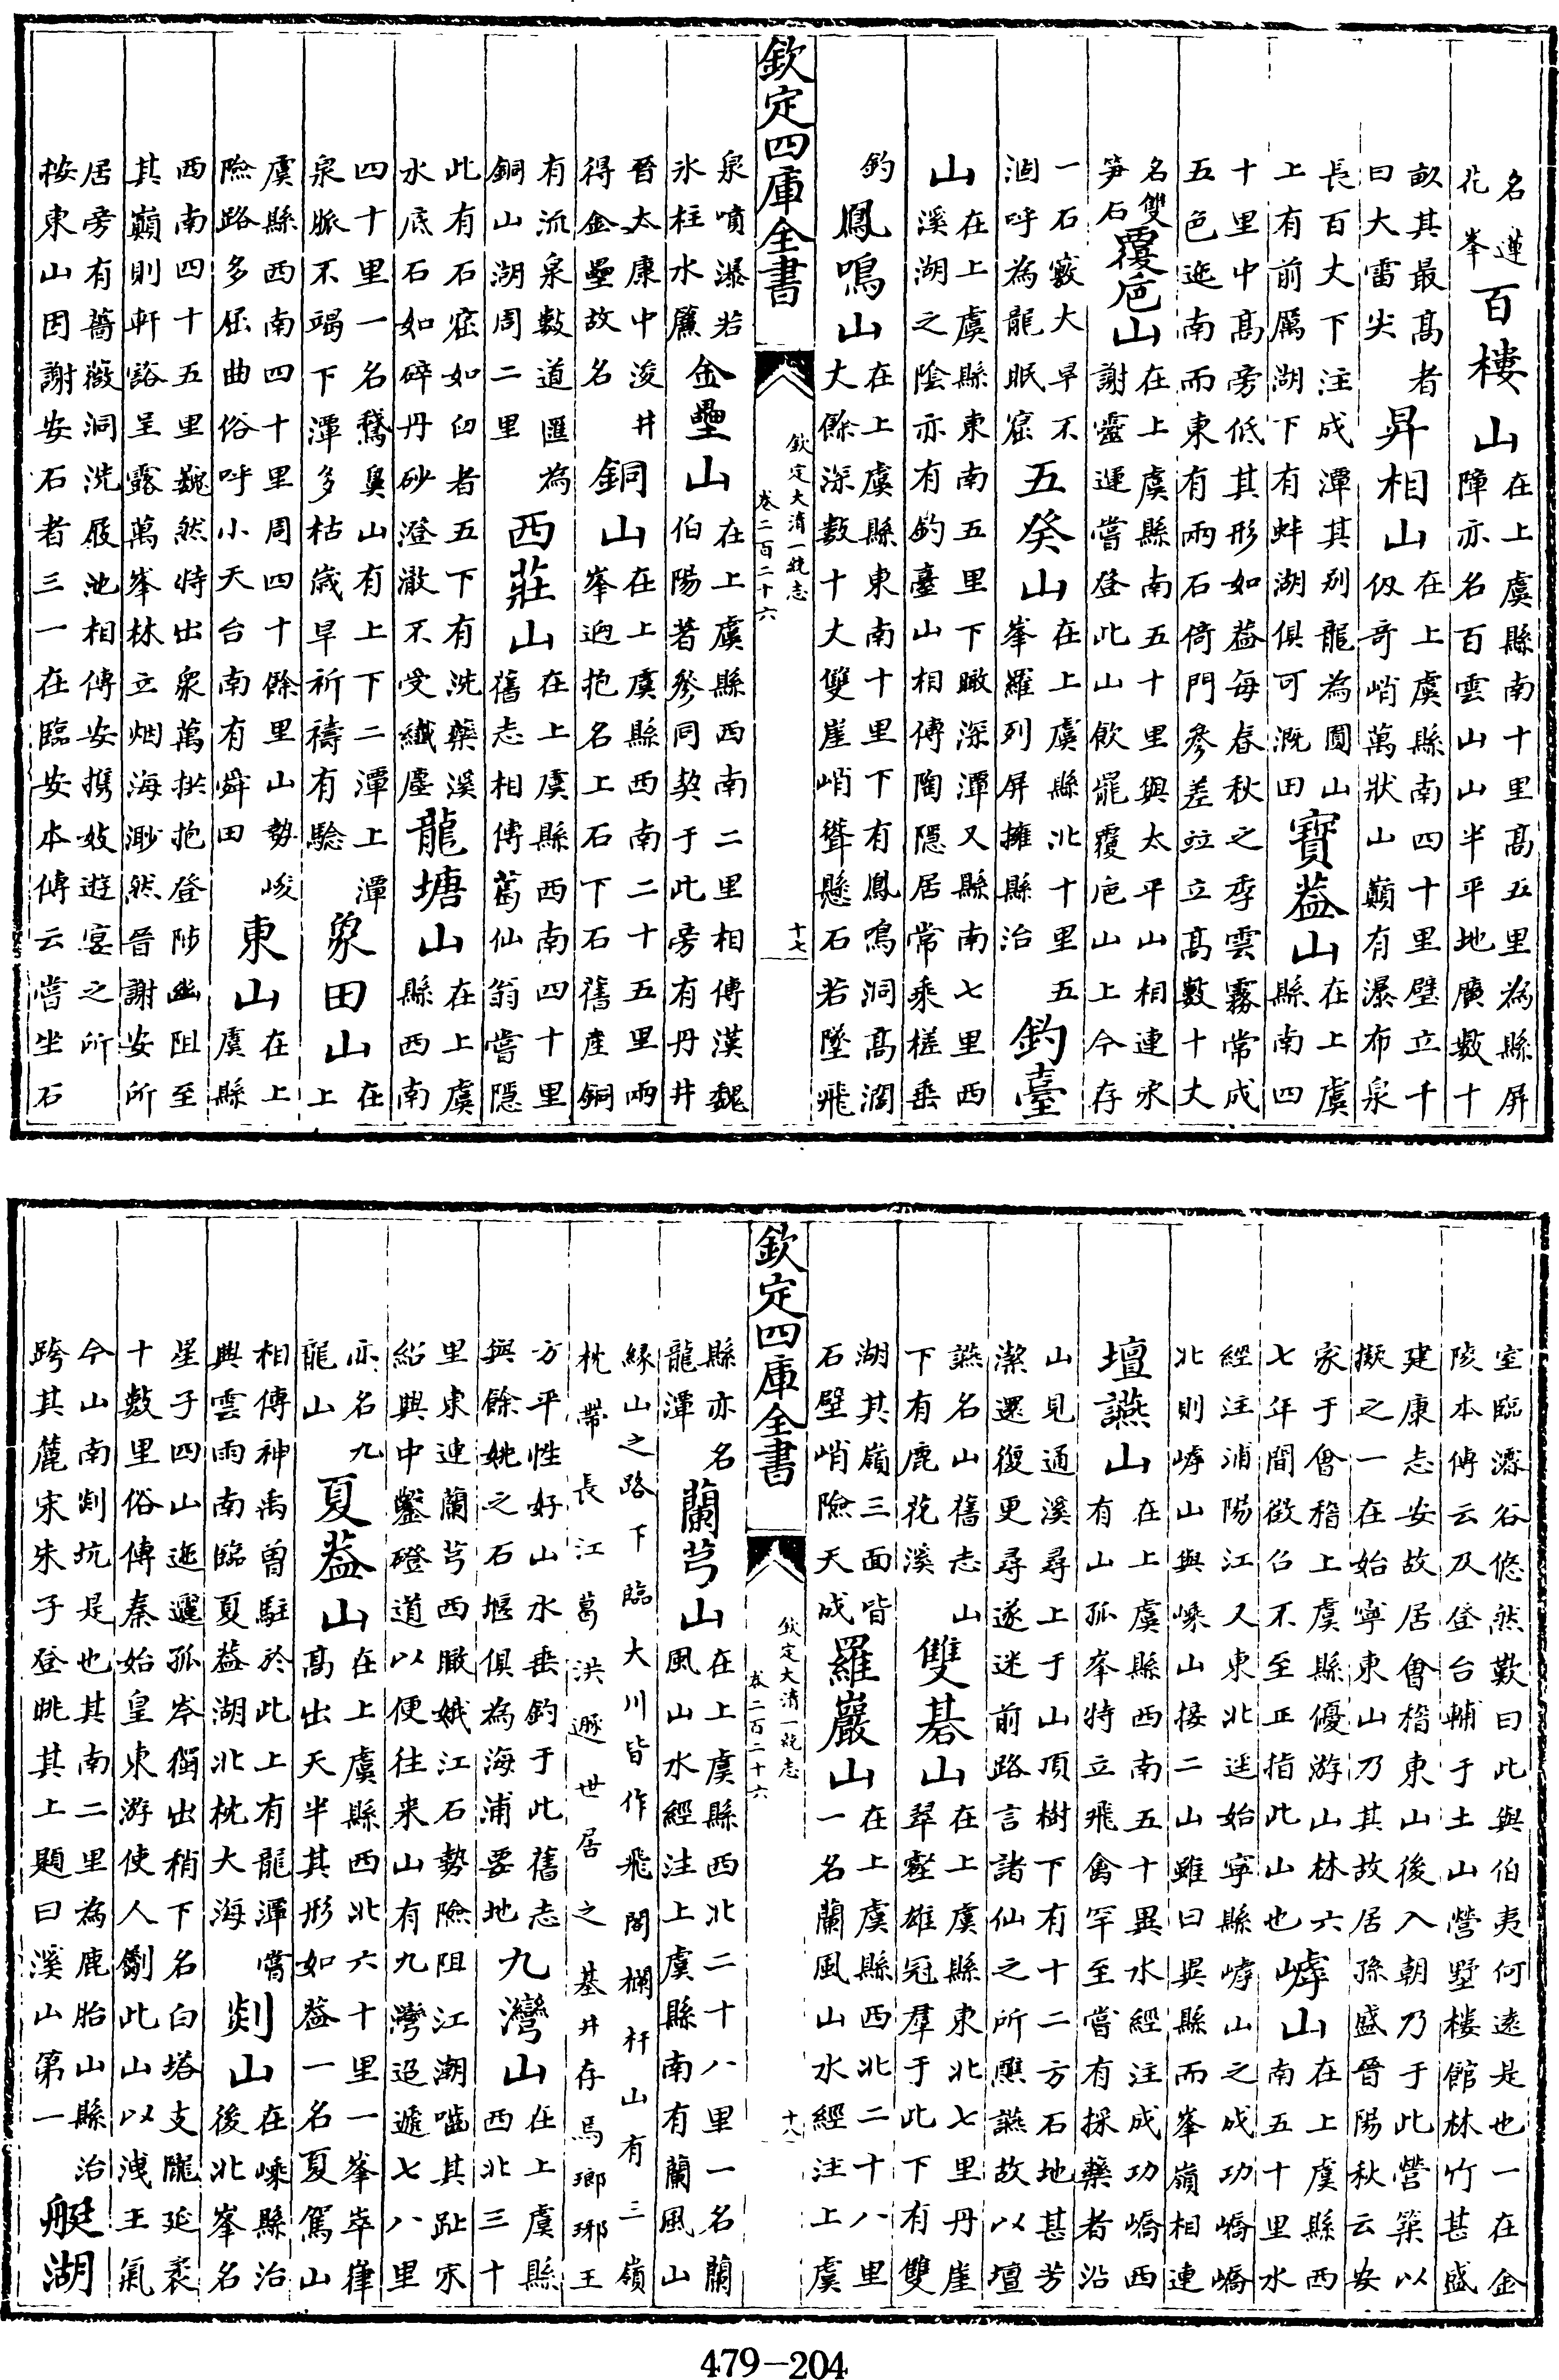 名蓮花峯百樓山在上虞縣南十里髙五里為縣屏障亦名百雲山山半平地廣數十
畝其最髙者曰大雷尖昇相山在上虞縣南四十里壁立千仭奇峭萬狀山巔有瀑布泉
長百丈下注成潭其别龍為圓山上有前厲湖下有蚌湖俱可溉田寳葢山在上虞縣南四
十里中髙旁低其形如葢每春秋之季雲霧常成五色迤南而東有兩石倚門參差竝立髙數十丈
名雙笋石覆巵山在上虞縣南五十里與太平山相連宋謝靈運嘗登此山飲罷覆巵山上今存
一石竅大旱不涸呼為龍眠窟五癸山在上虞縣北十里五峯羅列屏擁縣治釣臺
山在上虞縣東南五里下瞰深潭又縣南七里西溪湖之隂亦有釣臺山相傳陶隱居常乘槎垂
釣鳳鳴山在上虞縣東南十里下有鳳鳴洞髙濶大餘深數十丈雙崖峭聳懸石若墜飛
欽定四庫全書 欽定大清一統志 卷二百二十六 十七
泉噴瀑若氷柱水簾金罍山在上虞縣西南二里相傳漢魏伯陽著參同契于此旁有丹井
晉太康中浚井得金罍故名銅山在上虞縣西南二十五里兩峯廻抱名上石下石舊産銅
有流泉數道匯為銅山湖周二里西莊山在上虞縣西南四十里舊志相傳葛仙翁嘗隱
此有石窟如臼者五下有洗藥溪水底石如碎丹砂澄澈不受纎塵龍塘山在上虞縣西南
四十里一名鵞鼻山有上下二潭上潭泉脈不竭下潭多枯嵗旱祈禱有驗象田山在上
虞縣西南四十里周四十餘里山勢峻險路多屈曲俗呼小天台南有舜田東山在上虞縣
西南四十五里巍然特出衆萬拱抱登陟幽阻至其巔則軒谿呈露萬峯林立烟海渺然晉謝安所
居旁有薔薇洞洗屐池相傳安攜妓遊宴之所按東山因謝安石者三一在臨安本傳云嘗坐石
室臨濬谷悠然歎曰此與伯夷何逺是也一在金陵本傳云及登台輔于土山營墅樓館林竹甚盛
建康志安故居會稽東山後入朝乃于此營築以擬之一在始寧東山乃其故居孫盛晉陽秋云安
家于會稽上虞縣優游山林六七年間徵召不至正指此山也㟯山在上虞縣西南五十里水
經注浦陽江又東北逕始寧縣㟯山之成功嶠嶠北則㟯山與嵊山接二山雖曰異縣而峯嶺相連
壇讌山在上虞縣西南五十異水經注成功嶠西有山孤峯特立飛禽罕至嘗有採藥者沿
山見通溪尋上于山頂樹下有十二方石地甚芳潔還復更尋遂迷前路言諸仙之所䜩讌故以壇
讌名山舊志山下有鹿花溪雙碁山在上虞縣東北七里丹崖翠壑雄冠羣于此下有雙
湖其嶺三面皆石壁峭險天成羅巖山在上虞縣西北二十八里一名蘭風山水經注上虞
欽定四庫全書 欽定大清一統志 卷二百二十六 十八
縣亦名龍潭蘭芎山在上虞縣西北二十八里一名蘭風山水經注上虞縣南有蘭風山
緣山之路下臨大川皆作飛閣欄杆山有三嶺枕帶長江葛洪遯世居之基井存焉瑯琊王
方平性好山水垂釣于此舊志與餘姚之石堰俱為海浦要地九灣山在上虞縣西北三十
里東連蘭芎西瞰娥江石勢險阻江潮嚙其趾宋紹興中鑿磴道以便往来山有九灣迢遞七八里
亦名九龍山夏葢山在上虞縣西北六十里一峯崒嵂髙出天半其形如葢一名夏駕山
相傳神禹曾駐於此上有龍潭嘗興雲雨南臨夏葢湖北枕大海剡山在嵊縣治後北峯名
星子四山迤邐孤岑獨出稍下名白塔支隴延袤十數里俗傳秦始皇東游使人劚此山以洩王氣
今山南剡坑是也其南二里為鹿胎山縣治跨其麓宋朱子登眺其上題曰溪山第一艇湖
479-204